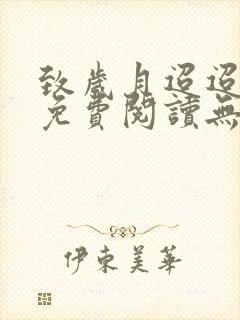 致歲月迢迢
免費閱讀無
伊東美華